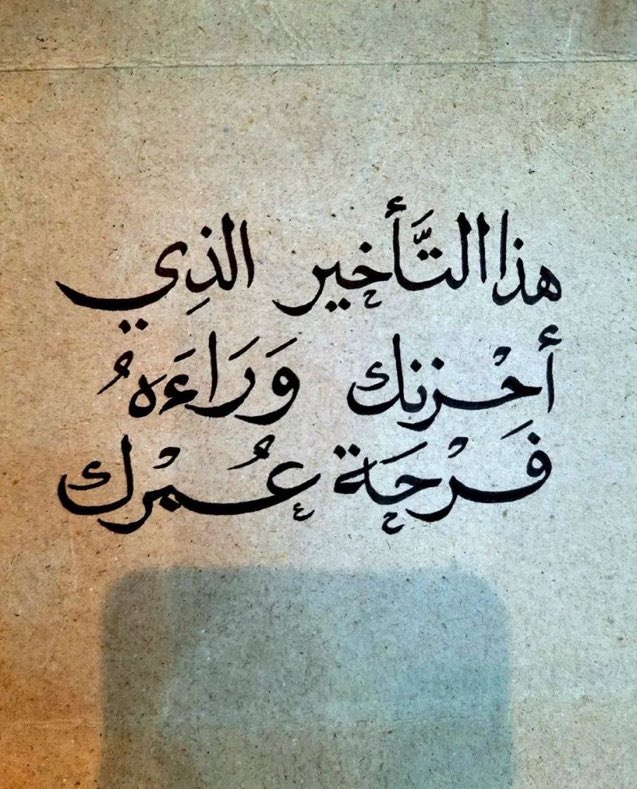 هذا التَّأخير الذِي
أحْزنك وَرَاءَهُ
فَرْحَة عُمْرك